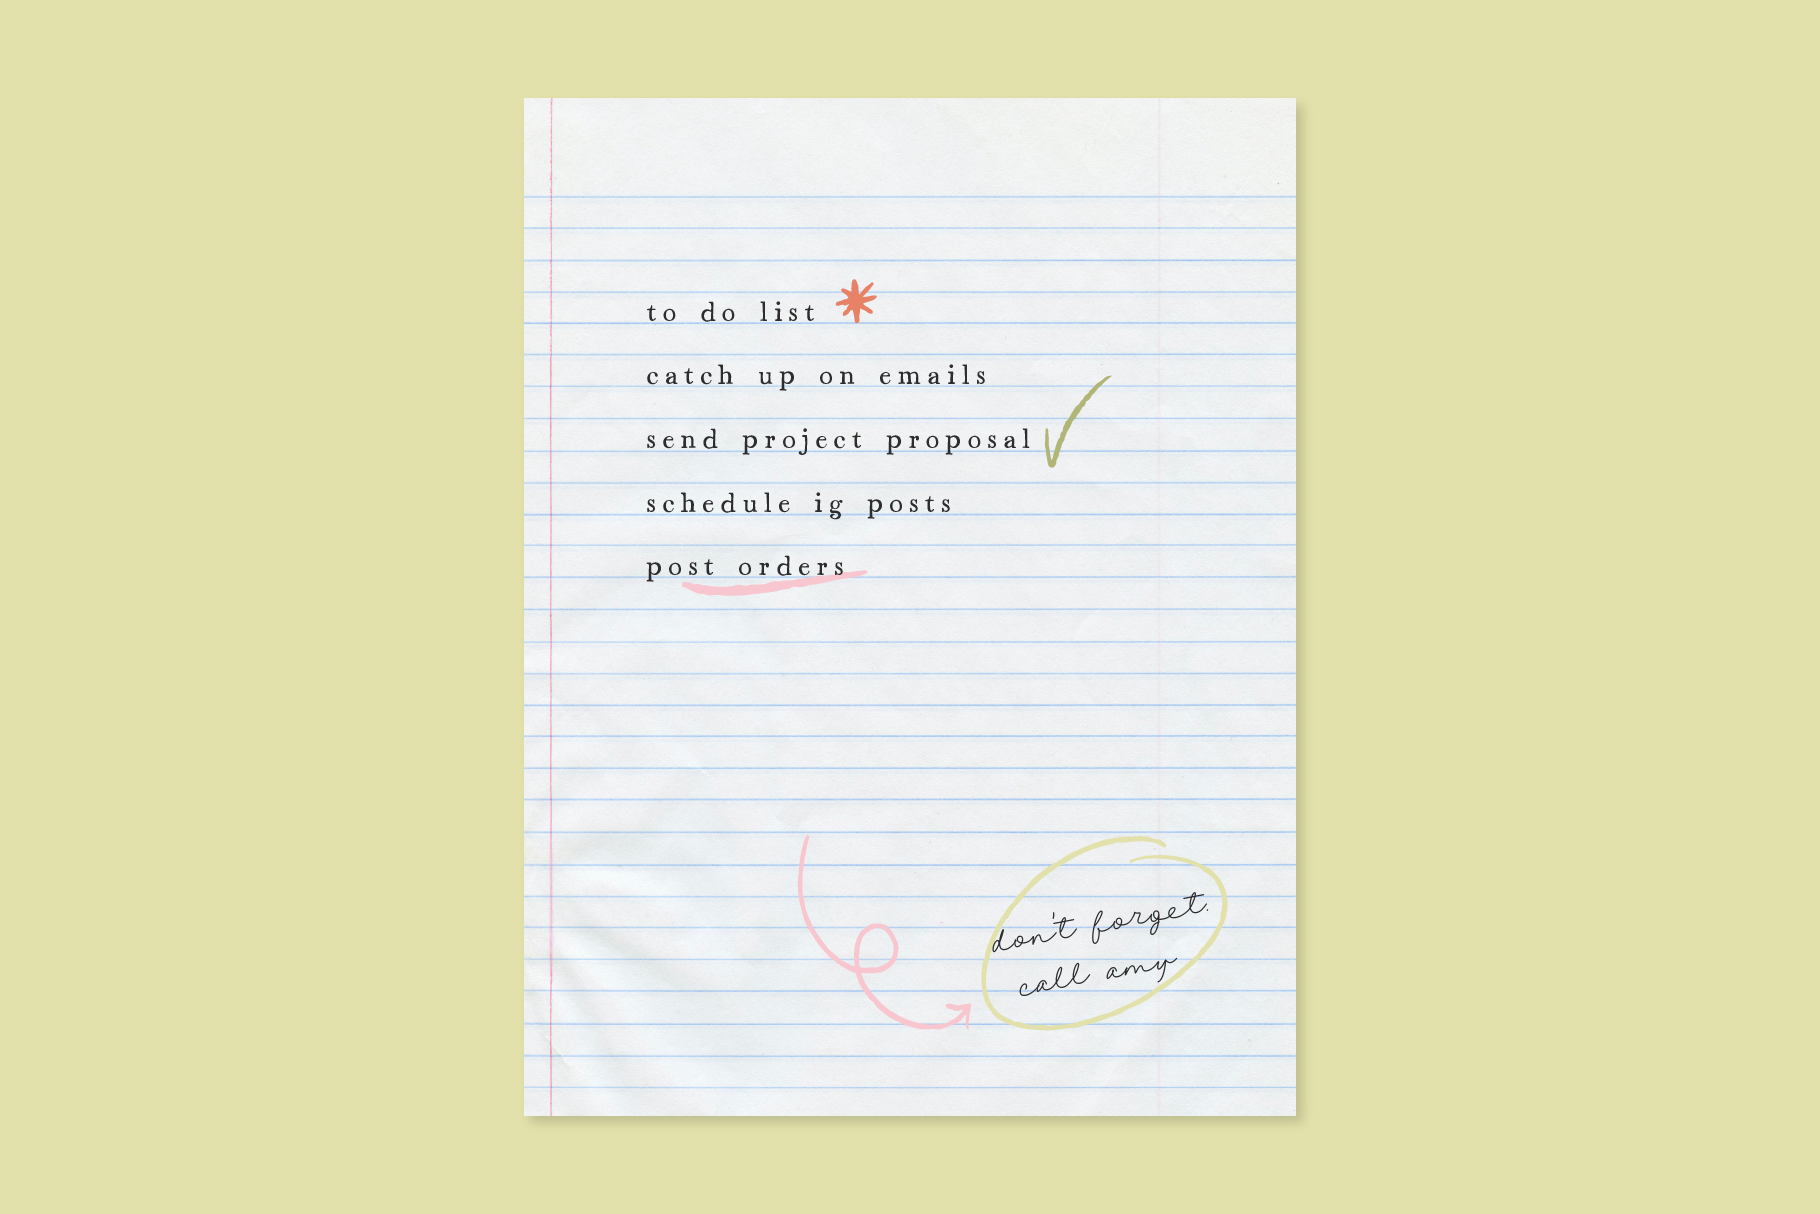 to do list
catch up on emails
send project proposal
schedule ig posts
post orders
don't forget.
call amy